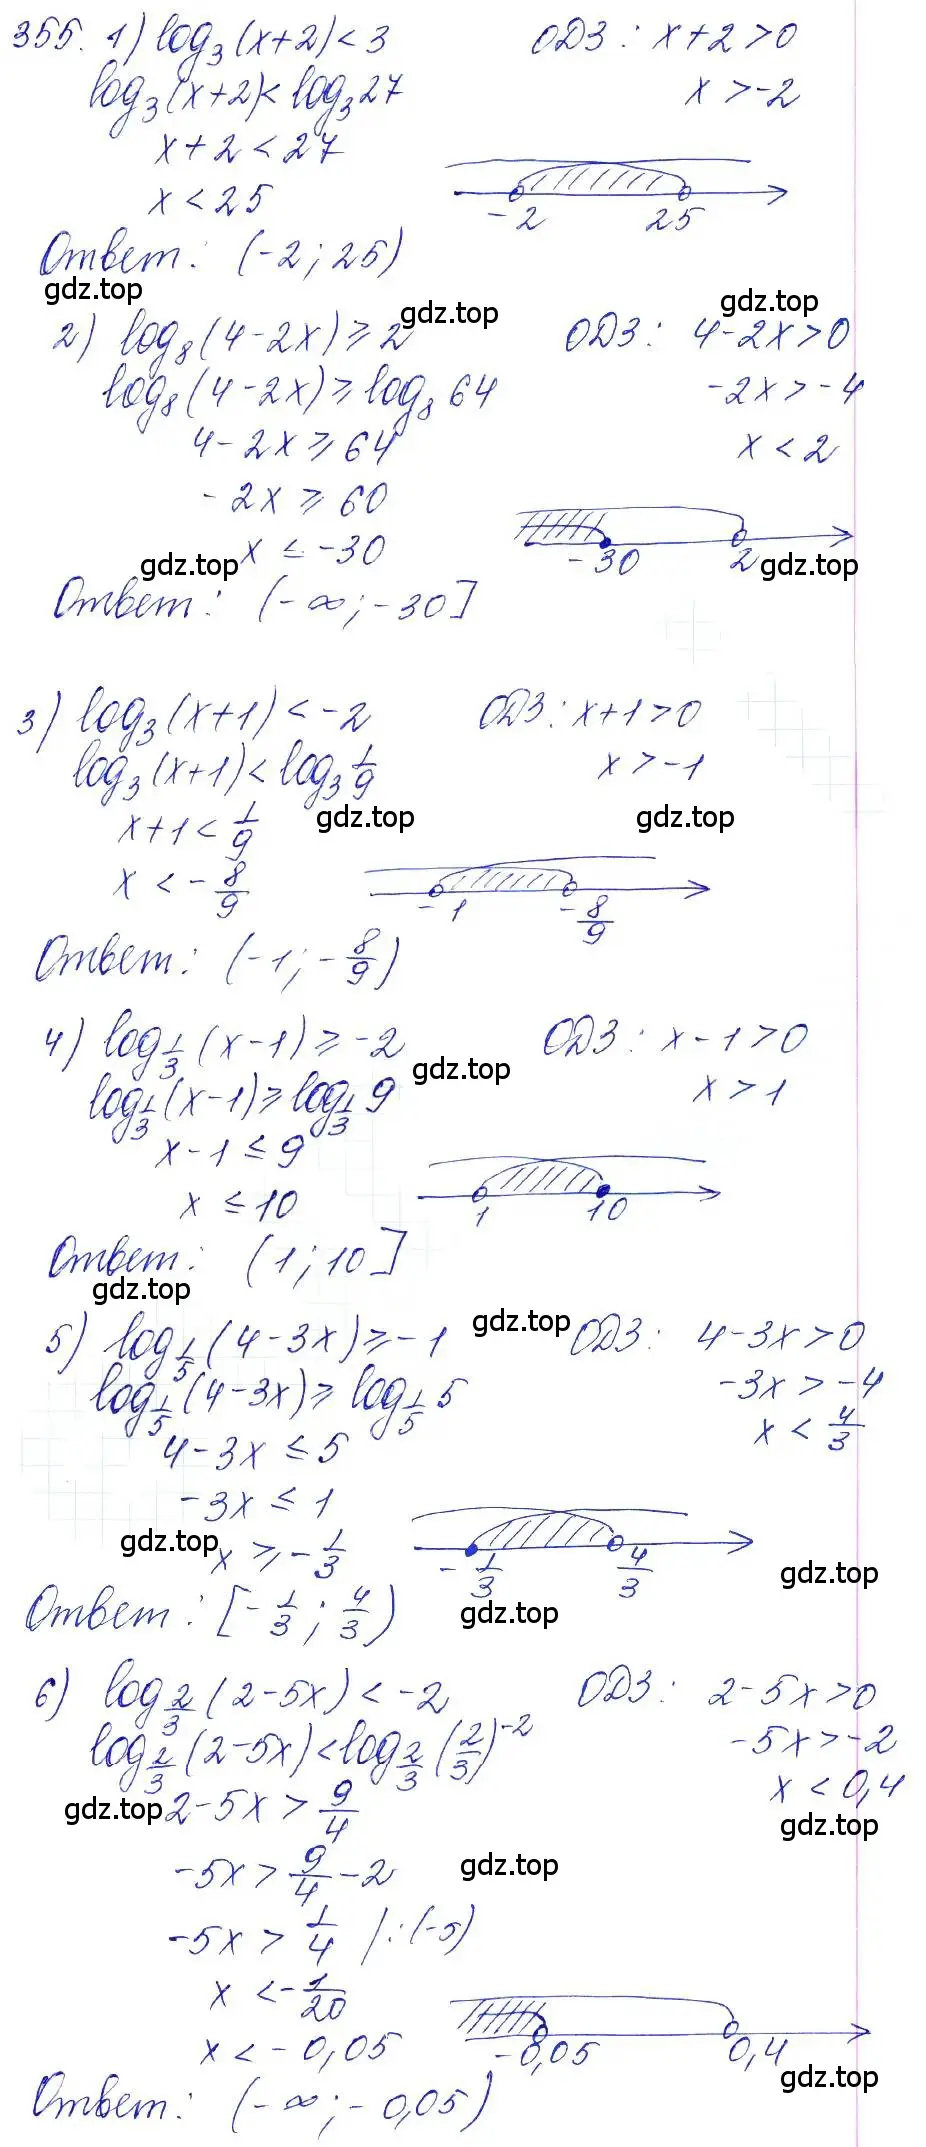 355. 1) log₃(x+2)<3 ОДЗ: x+2>0
log₃(x+2)<log₃27 x>-2
x+2<27
x<25
-2 25
Ответ: (-2; 25)
gdz.top
gdz.top
gdz.top
2) log₈(4-2x)≥2 ОДЗ: 4-2x>0
log₈(4-2x)≥log₈64 -2x>-4
4-2x≥64 x<2
-2x≥60
x≤-30
-30 2
gdz.top
gdz.top
Ответ: (-∞; -30]
3) log₃(x+1)<-2 ОДЗ: x+1>0
log₃(x+1)<log₃ 1/9 x>-1
x+1<1/9
gdz.top
gdz.top
x<-8/9
-1 -8/9
Ответ: (-1; -8/9)
4) log_{1/3}(x-1)≥-2 ОДЗ: x-1>0
gdz.top
log_{1/3}(x-1)≥log_{1/3}9 x>1
x-1≤9
x≤10
1 10
Ответ: (1; 10]
gdz.top
gdz.top
5) log_{1/5}(4-3x)≥-1 ОДЗ: 4-3x>0
log_{1/5}(4-3x)≥log_{1/5}5 -3x>-4
4-3x≤5 x<4/3
-3x≤1
gdz.top
x≥-1/3
-1/3 4/3
gdz.top
Ответ: [-1/3; 4/3)
gdz.top
6) log_{2/3}(2-5x)<-2 ОДЗ: 2-5x>0
log_{2/3}(2-5x)<log_{2/3}(2/3)^{-2} -5x>-2
gdz.top
2-5x>9/4 x<0,4
gdz.top
-5x>9/4-2
gdz.top
-5x>1/4 |:(-5)
x<-1/20
x<-0,05
-0,05 0,4
gdz.top
Ответ: (-∞; -0,05)